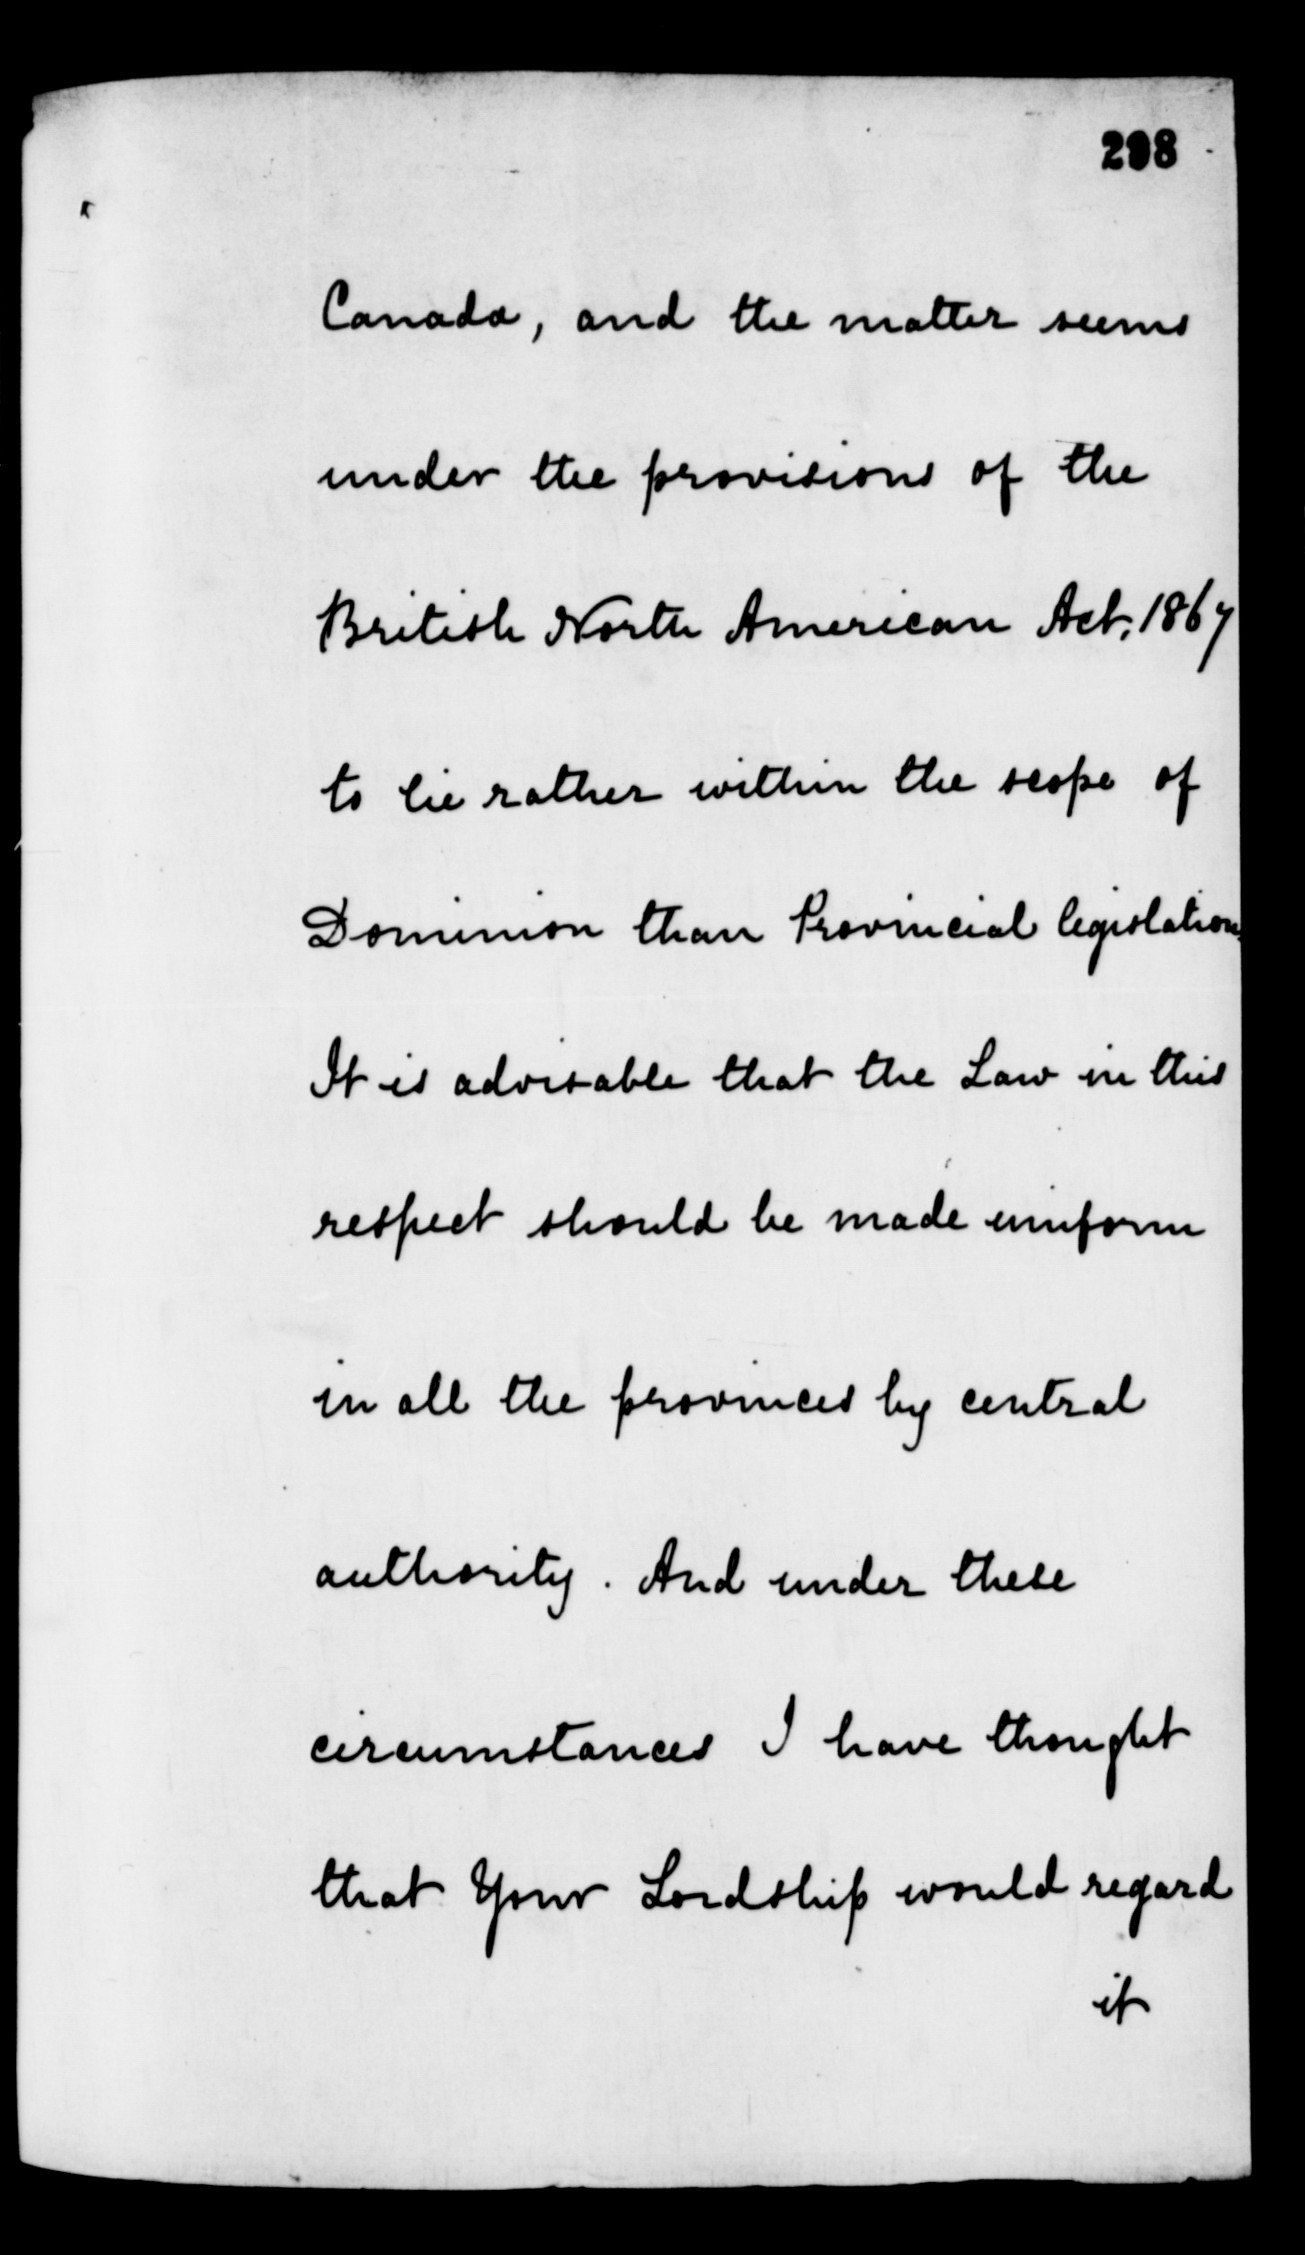 298
Canada, and the matter seems
under the provisions of the
British North American Act, 1867
to lie rather within the scope of
Dominion than Provincial legislation.
It is advisable that the Law in this
respect should be made uniform
in all the provinces by central
authority. And under these
circumstances I have thought
that Your Lordship would regard
it